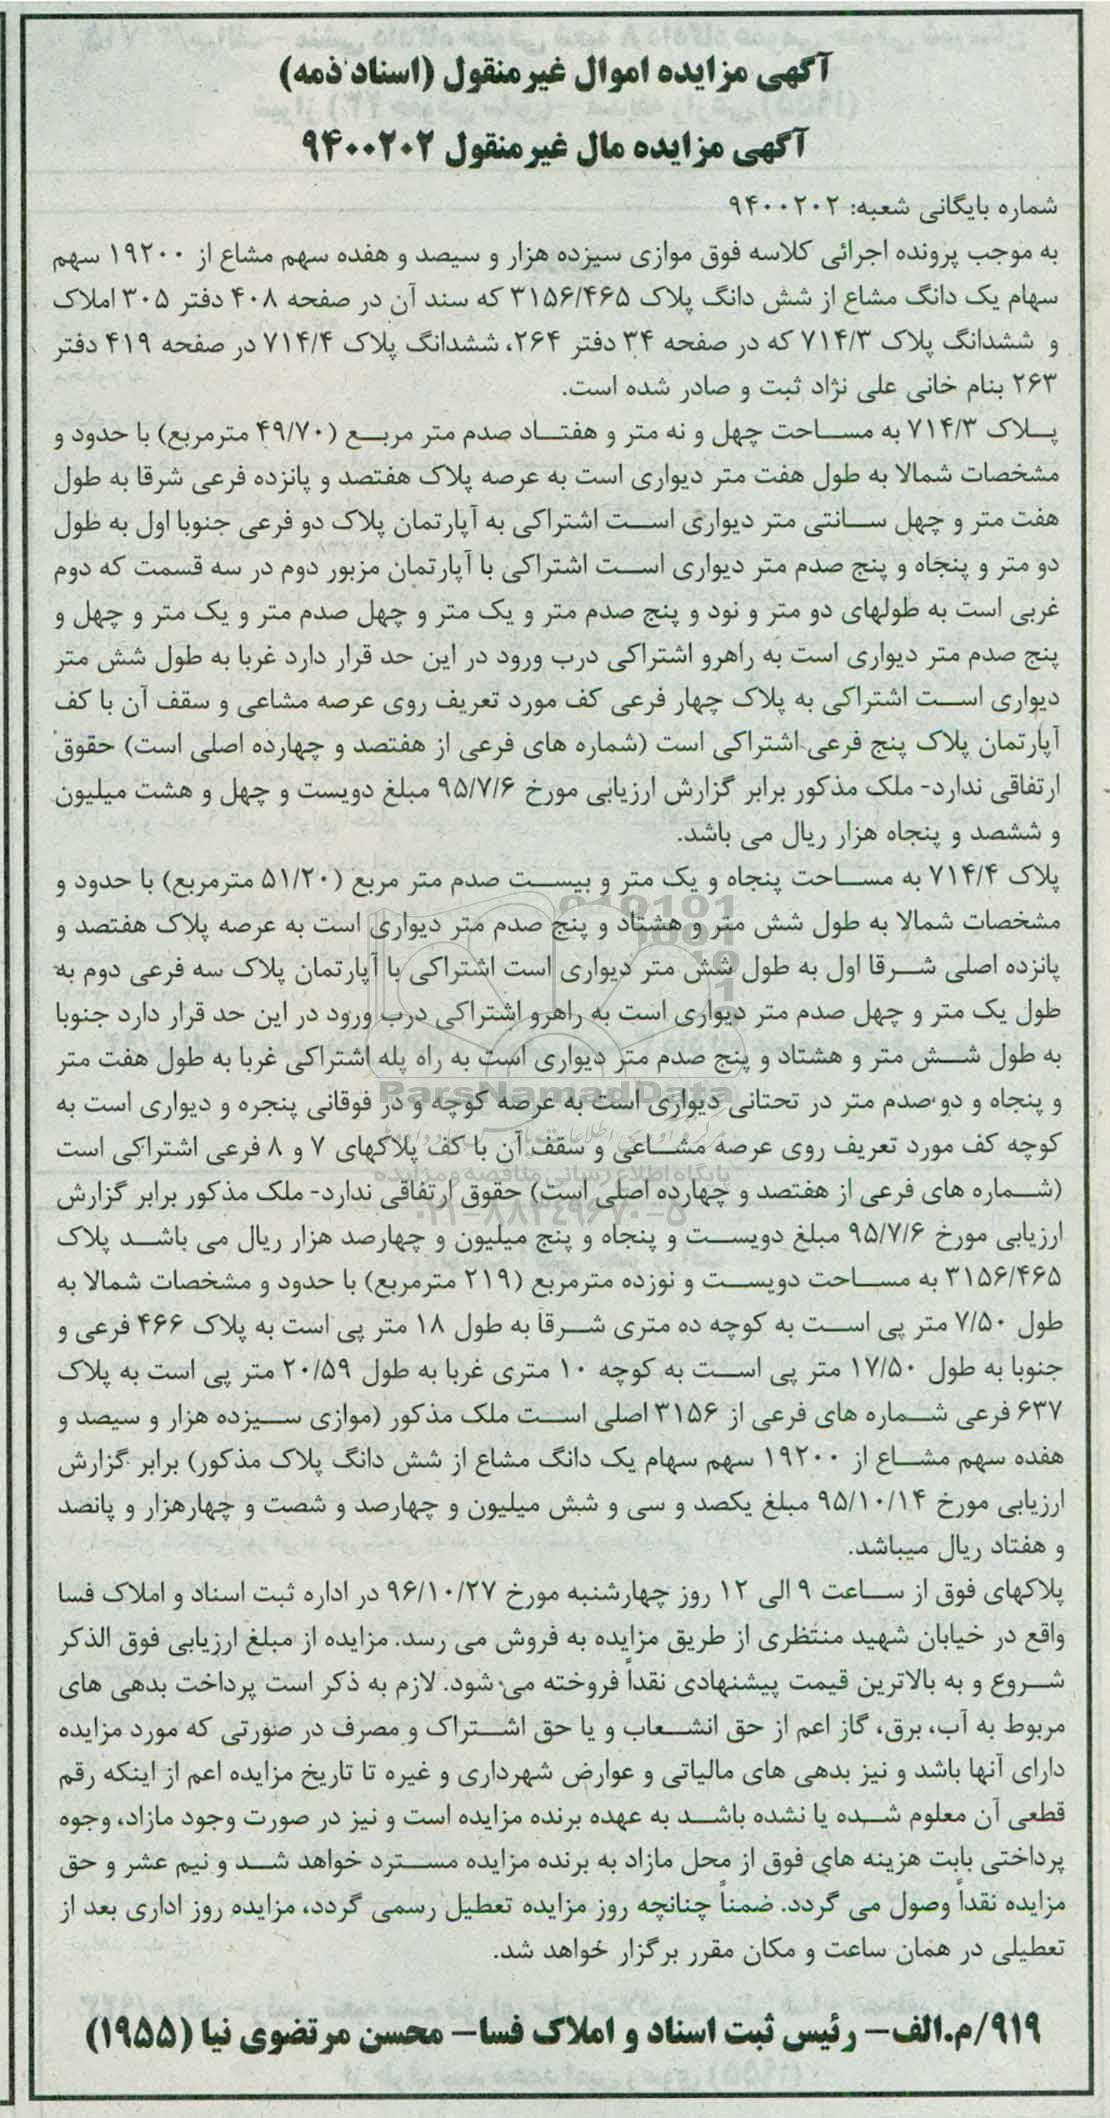 آگهی مزایده اموال غیرمنقول (اسناد ذمه)
آگهی مزایده مال غیرمنقول ۹۴۰۰۲۰۲
شماره بایگانی شعبه: ۹۴۰۰۲۰۲
به موجب پرونده اجرائی کلاسه فوق موازی سیزده هزار و سیصد و هفده سهم مشاع از ۱۹۲۰۰ سهم
سهام یک دانگ مشاع از شش دانگ پلاک ۳۱۵۶/۴۶۵ که سند آن در صفحه ۴۰۸ دفتر ۳۰۵ املاک
و ششدانگ پلاک ۷۱۴/۳ که در صفحه ۳۴ دفتر ۲۶۴، ششدانگ پلاک ۷۱۴/۴ در صفحه ۴۱۹ دفتر
۲۶۳ بنام خانی علی نژاد ثبت و صادر شده است.
پلاک ۷۱۴/۳ به مساحت چهل و نه متر و هفتاد صدم متر مربع (۴۹/۷۰ مترمربع) با حدود و
مشخصات شمالا به طول هفت متر دیواری است به عرصه پلاک هفتصد و پانزده فرعی شرقا به طول
هفت متر و چهل سانتی متر دیواری است اشتراکی به آپارتمان پلاک دو فرعی جنوبا اول به طول
دو متر و پنجاه و پنج صدم متر دیواری است اشتراکی با آپارتمان مزبور دوم در سه قسمت که دوم
غربی است به طولهای دو متر و نود و پنج صدم متر و یک متر و چهل صدم متر و یک متر و چهل و
پنج صدم متر دیواری است به راهرو اشتراکی درب ورود در این حد قرار دارد غربا به طول شش متر
دیواری است اشتراکی به پلاک چهار فرعی کف مورد تعریف روی عرصه مشاعی و سقف آن با کف
آپارتمان پلاک پنج فرعی اشتراکی است (شماره های فرعی از هفتصد و چهارده اصلی است) حقوق
ارتفاقی ندارد- ملک مذکور برابر گزارش ارزیابی مورخ ۹۵/۷/۶ مبلغ دویست و چهل و هشت میلیون
و ششصد و پنجاه هزار ریال می باشد.
پلاک ۷۱۴/۴ به مساحت پنجاه و یک متر و بیست صدم متر مربع (۵۱/۲۰ مترمربع) با حدود و
مشخصات شمالا به طول شش متر و هشتاد و پنج صدم متر دیواری است به عرصه پلاک هفتصد و
پانزده اصلی شرقا اول به طول شش متر دیواری است اشتراکی با آپارتمان پلاک سه فرعی دوم به
طول یک متر و چهل صدم متر دیواری است به راهرو اشتراکی درب ورود در این حد قرار دارد جنوبا
به طول شش متر و هشتاد و پنج صدم متر دیواری است به راه پله اشتراکی غربا به طول هفت متر
و پنجاه و دو صدم متر در تحتانی دیواری است به عرصه کوچه و در فوقانی پنجره و دیواری است به
ParsNamadData
کوچه کف مورد تعریف روی عرصه مشاعی و سقف آن با کف پلاکهای ۷ و ۸ فرعی اشتراکی است
پایگاه اطلاع رسانی مناقصه و مزایده
(شماره های فرعی از هفتصد و چهارده اصلی است) حقوق ارتفاقی ندارد- ملک مذکور برابر گزارش
۰۲۱-۸۸۳۴۹۶۷۰-۵
ارزیابی مورخ ۹۵/۷/۶ مبلغ دویست و پنجاه و پنج میلیون و چهارصد هزار ریال می باشد پلاک
۳۱۵۶/۴۶۵ به مساحت دویست و نوزده مترمربع (۲۱۹ مترمربع) با حدود و مشخصات شمالا به
طول ۷/۵۰ متر پی است به کوچه ده متری شرقا به طول ۱۸ متر پی است به پلاک ۴۶۶ فرعی و
جنوبا به طول ۱۷/۵۰ متر پی است به کوچه ۱۰ متری غربا به طول ۲۰/۵۹ متر پی است به پلاک
۶۳۷ فرعی شماره های فرعی از ۳۱۵۶ اصلی است ملک مذکور (موازی سیزده هزار و سیصد و
هفده سهم مشاع از ۱۹۲۰۰ سهم سهام یک دانگ مشاع از شش دانگ پلاک مذکور) برابر گزارش
ارزیابی مورخ ۹۵/۱۰/۱۴ مبلغ یکصد و سی و شش میلیون و چهارصد و شصت و چهارهزار و پانصد
و هفتاد ریال میباشد.
پلاکهای فوق از ساعت ۹ الی ۱۲ روز چهارشنبه مورخ ۹۶/۱۰/۲۷ در اداره ثبت اسناد و املاک فسا
واقع در خیابان شهید منتظری از طریق مزایده به فروش می رسد. مزایده از مبلغ ارزیابی فوق الذکر
شروع و به بالاترین قیمت پیشنهادی نقداً فروخته می شود. لازم به ذکر است پرداخت بدهی های
مربوط به آب، برق، گاز اعم از حق انشعاب و یا حق اشتراک و مصرف در صورتی که مورد مزایده
دارای آنها باشد و نیز بدهی های مالیاتی و عوارض شهرداری و غیره تا تاریخ مزایده اعم از اینکه رقم
قطعی آن معلوم شده یا نشده باشد به عهده برنده مزایده است و نیز در صورت وجود مازاد، وجوه
پرداختی بابت هزینه های فوق از محل مازاد به برنده مزایده مسترد خواهد شد و نیم عشر و حق
مزایده نقداً وصول می گردد. ضمناً چنانچه روز مزایده تعطیل رسمی گردد، مزایده روز اداری بعد از
تعطیلی در همان ساعت و مکان مقرر برگزار خواهد شد.
۹۱۹/م.الف- رئیس ثبت اسناد و املاک فسا- محسن مرتضوی نیا (۱۹۵۵)